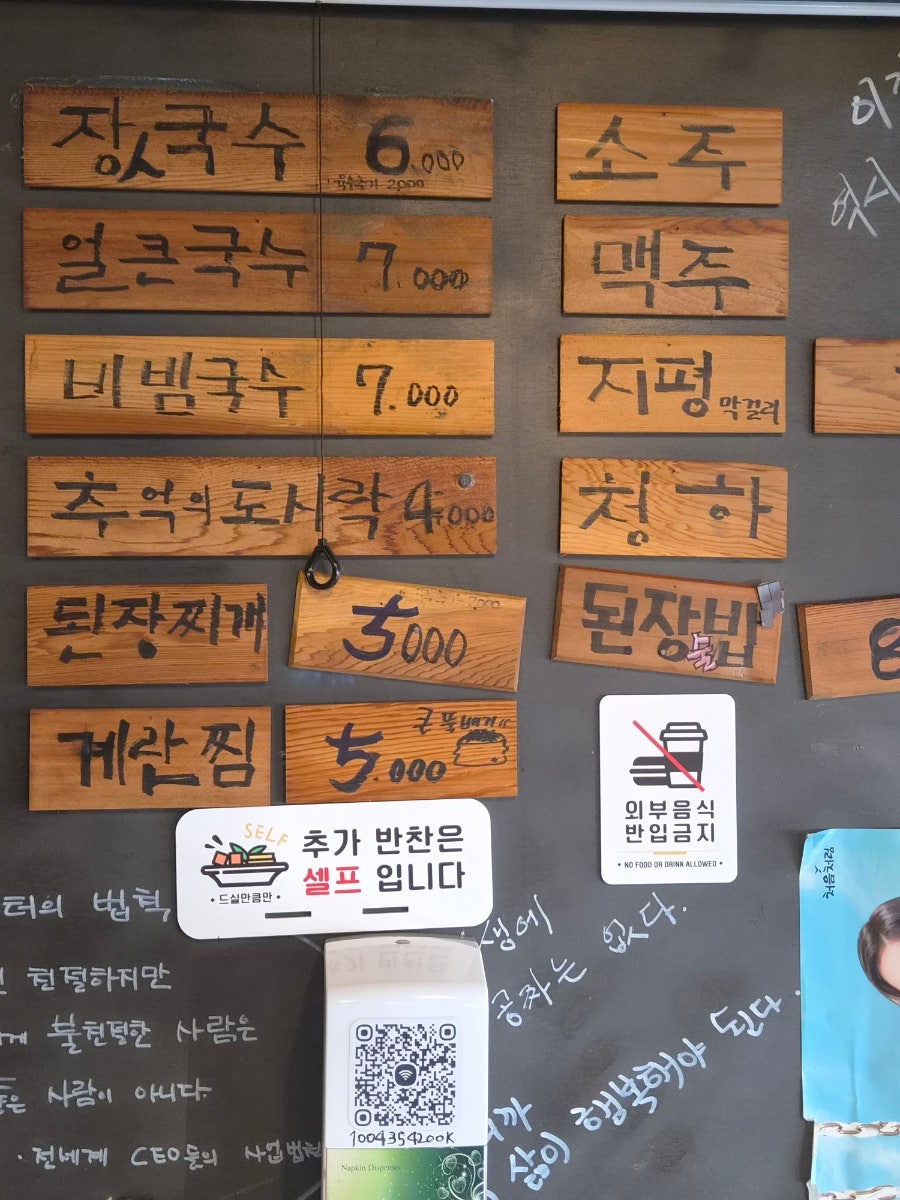 장국수 6.000
육수추가 2,000
얼큰국수 7.000
비빔국수 7.000
추억의도시락 4.000
된장찌개 5000
계란찜 5.000
큰 뚝배기
소주
맥주
지평 막걸리
청하
된장술밥
8
외부음식
반입금지
• NO FOOD OR DRINK ALLOWED •
SELF
추가 반찬은
셀프 입니다
• 드실만큼만 •
처음처럼
터의 법칙
친절하지만
불친절한 사람은
사람이 아니다.
· 전세계 CEO들의 사업법칙
생에
공짜는 없다.
삶이 행복해야 된다.
1004354200K
Napkin Dispenser